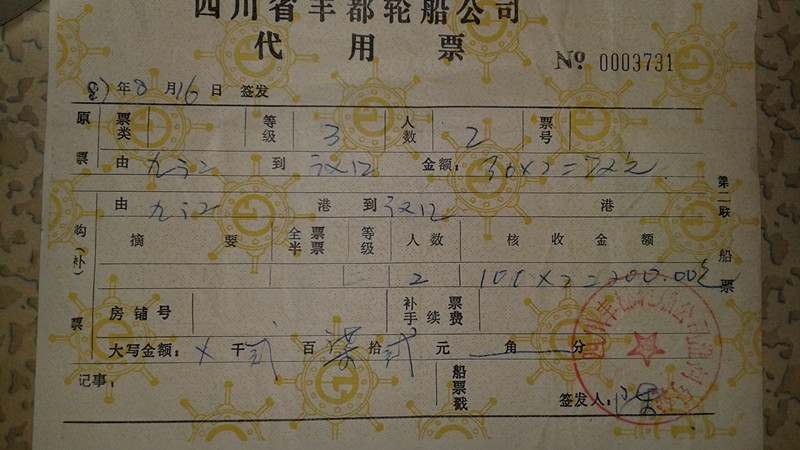 四川省丰都轮船公司
代用票
№ 0003731
87年8月16日 签发
原票 票类 等级 3 人数 2 票号
由 九江 到 汉口 金额: 36×2=72元
由 九江 港 到 汉口 港
购(补)票 摘要 全票 半票 等级 人数 核收金额
2 100×2=200.00元
房铺号 补票手续费
大写金额: × 千 贰 百 柒 拾 贰 元 角 分
记事: 船票戳 签发人:
第二联 船票